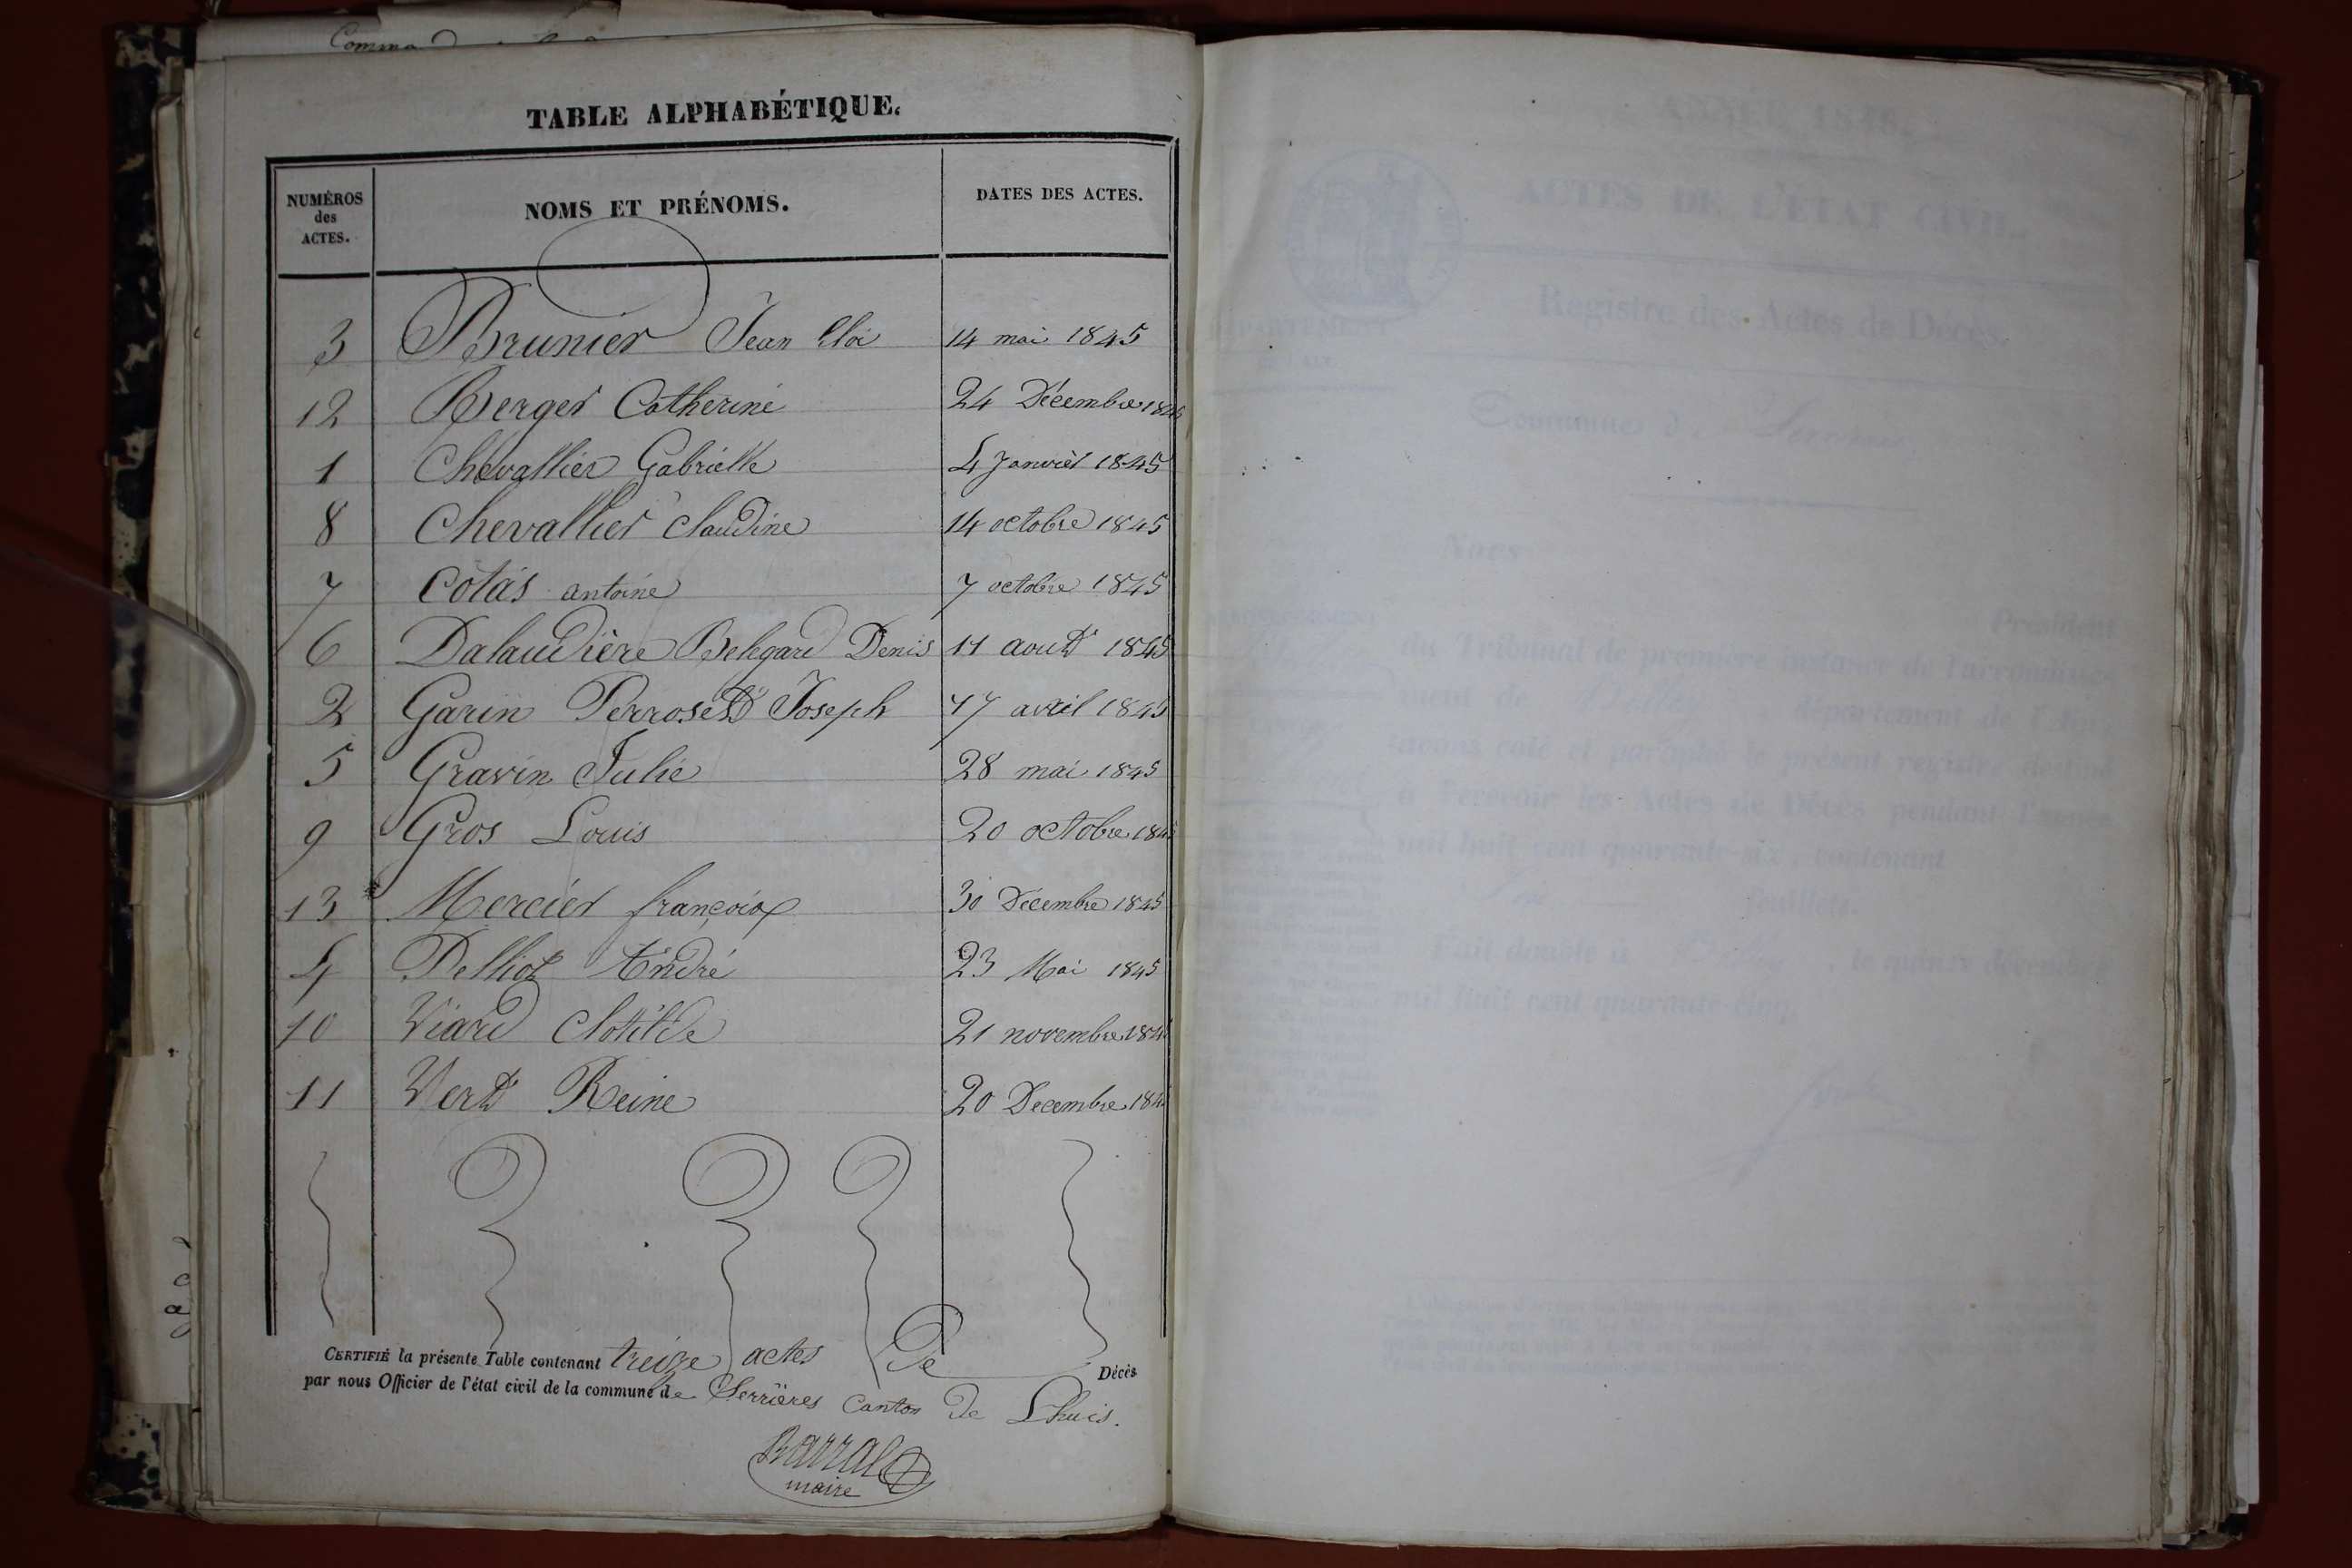 TABLE ALPHABÉTIQUE.
NUMÉROS des ACTES. NOMS ET PRÉNOMS. DATES DES ACTES.
3 Brunier Jean Eloi 14 mai 1845
12 Berger Catherine 24 Décembre 1845
1 Chevallier Gabrielle 4 Janvier 1845
8 Chevallier Claudine 14 octobre 1845
7 Cotas antoine 7 octobre 1845
6 Dalaudière Belegard Denis 11 aout 1845
2 Garin Perroset Joseph 17 avril 1845
5 Gravin Julie 28 mai 1845
9 Gros Louis 20 octobre 1845
13 Mercier françois 30 Décembre 1845
4 Pelliot André 23 Mai 1845
10 Viard Clotilde 21 novembre 1845
11 Vert Reine 20 Decembre 1845
CERTIFIÉ la présente Table contenant treize actes De Décès
par nous Officier de l'état civil de la commune de Serrières Canton de Lhuis.
Barral
maire
ACTES DE L'ÉTAT CIVIL.
Registre des Actes de Décès.
Nous
Président
du Tribunal de première instance de l'arrondisse-
ment de département de l'Ain,
avons coté et paraphé le présent registre destiné
à recevoir les Actes de Décès pendant l'année
mil huit cent quarante-six, contenant
feuillets.
Fait double à le quinze décembre
mil huit cent quarante-cinq.